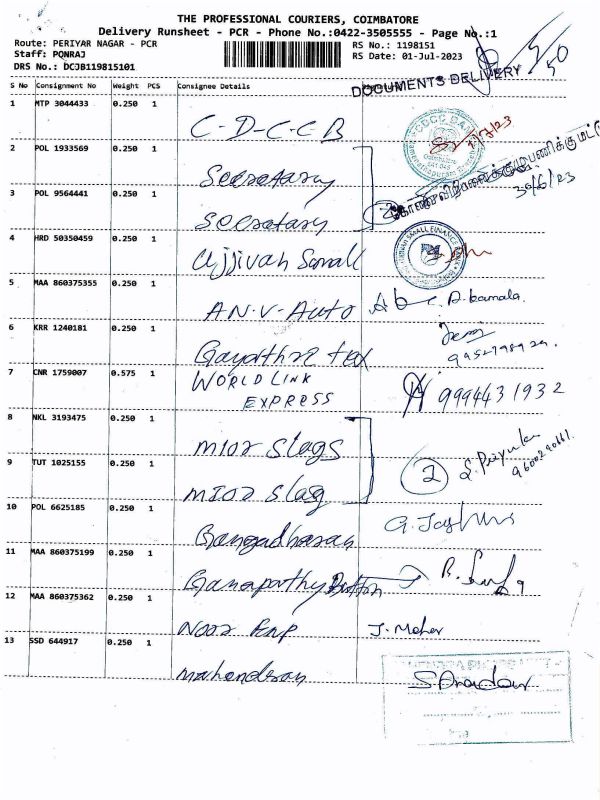 THE PROFESSIONAL COURIERS, COIMBATORE
Delivery Runsheet - PCR - Phone No.:0422-3505555 - Page No.:1
Route: PERIYAR NAGAR - PCR
RS No.: 1198151
Staff: PONRAJ
RS Date: 01-Jul-2023
DRS No.: DCJB119815101
DOCUMENTS DELIVERY
S No Consignment No Weight PCS Consignee Details
1 MTP 3044433 0.250 1
C-D-C-C-B
1/7/23
2 POL 1933569 0.250 1
Secretary
30/6/23
3 POL 9564441 0.250 1
Secretary
4 HRD 50350459 0.250 1
Ujjivan Small
SMALL FINANCE
5 MAA 860375355 0.250 1
A.N.V-Auto
A. Kamala.
6 KRR 1240181 0.250 1
Gayathre tex
7 CNR 1759007 0.575 1
WORLD LINK
EXPRESS
9994431932
8 NKL 3193475 0.250 1
mior Slags
9 TUT 1025155 0.250 1
mior Slag
2
S. Priyanka
10 POL 6625185 0.250 1
Gangadharan
11 MAA 860375199 0.250 1
Ganapathy Button
12 MAA 860375362 0.250 1
Noor Emp
J. Maher
13 SSD 644917 0.250 1
Mahendran